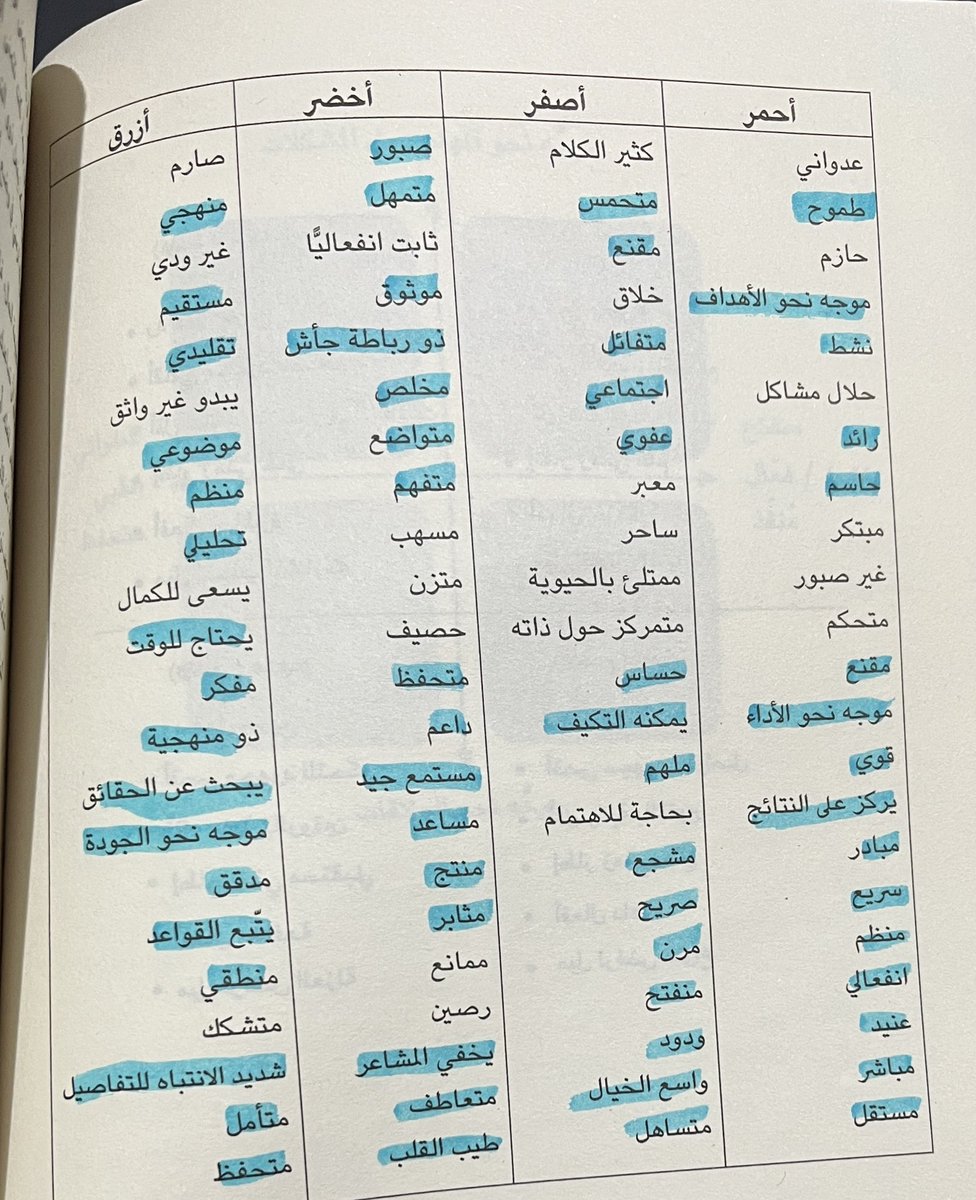 أحمر أصفر أخضر أزرق
عدواني كثير الكلام صبور صارم
طموح متحمس متمهل منهجي
حازم مقنع ثابت انفعاليًّا غير ودي
موجه نحو الأهداف خلاق موثوق مستقيم
نشط متفائل ذو رباطة جأش تقليدي
حلال مشاكل اجتماعي مخلص يبدو غير واثق
رائد عفوي متواضع موضوعي
حاسم معبر متفهم منظم
مبتكر ساحر مسهب تحليلي
غير صبور ممتلئ بالحيوية متزن يسعى للكمال
متحكم متمركز حول ذاته حصيف يحتاج للوقت
مقنع حساس متحفظ مفكر
موجه نحو الأداء يمكنه التكيف داعم ذو منهجية
قوي ملهم مستمع جيد يبحث عن الحقائق
يركز على النتائج بحاجة للاهتمام مساعد موجه نحو الجودة
مبادر مشجع منتج مدقق
سريع صريح مثابر يتّبع القواعد
منظم مرن ممانع منطقي
انفعالي منفتح رصين متشكك
عنيد ودود يخفي المشاعر شديد الانتباه للتفاصيل
مباشر واسع الخيال متعاطف متأمل
مستقل متساهل طيب القلب متحفظ